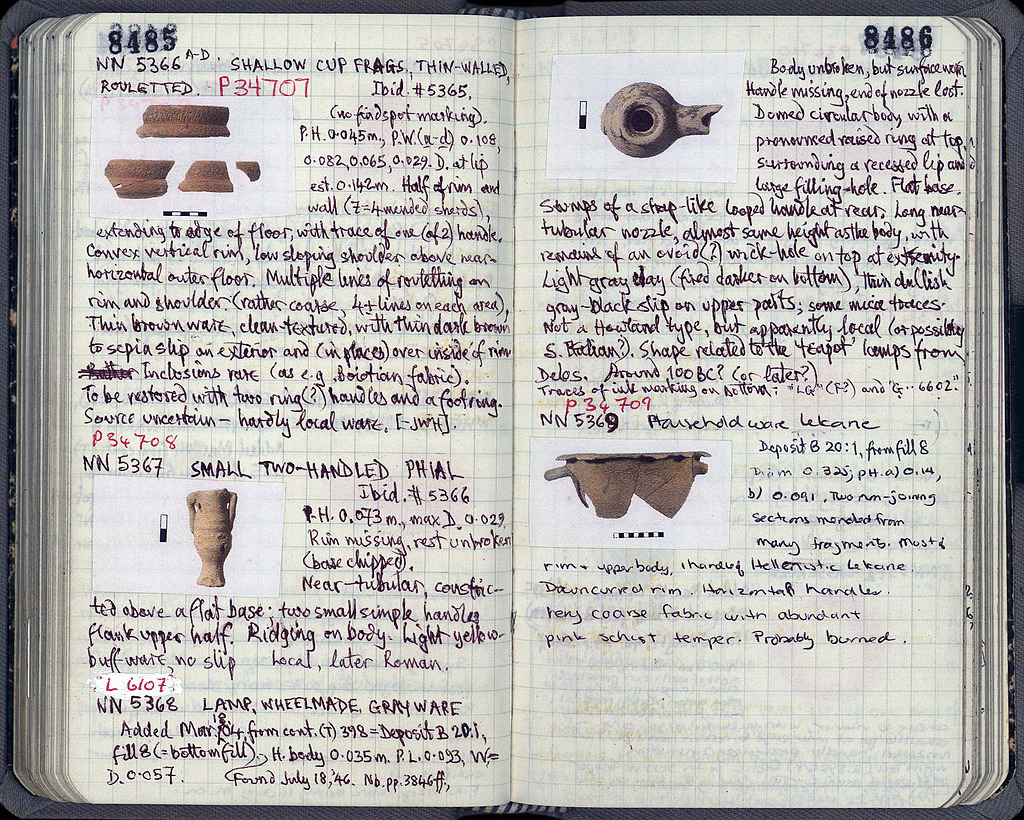 8485
NN 5366 A-D SHALLOW CUP FRAGS, THIN-WALLED,
ROULETTED. P 34707 Ibid. #5365,
(no findspot marking).
P.H. 0.045m., P.W. (a-d) 0.108,
0.082, 0.065, 0.029. D. at lip
est. 0.142m. Half of rim and
wall (7=4 mended sherds),
extending to edge of floor, with trace of one (of 2) handle.
Convex vertical rim, low sloping shoulder above near-
horizontal outer floor. Multiple lines of rouletting on
rim and shoulder (rather coarse, 4± lines on each area),
Thin brown ware, clean-textured, with thin dark brown
to sepia slip on exterior and (in places) over inside of rim
Inclusions rare (as e.g. Boiotian fabric).
To be restored with two ring(?) handles and a foot ring.
Source uncertain - hardly local ware. [-JWH].
P 34708
NN 5367 SMALL TWO-HANDLED PHIAL
Ibid. #5366
P.H. 0.073 m., max D. 0.029
Rim missing, rest unbroken
(base chipped).
Near-tubular, constric-
ted above a flat base; two small simple handles
flank upper half. Ridging on body. Light yellow-
buff ware, no slip Local, later Roman.
L 6107
NN 5368 LAMP, WHEELMADE, GRAY WARE
Added Mar. 18, 04, from cont. (T) 398 = Deposit B 20:1,
fill 8 (= bottom fill), H. body 0.035m. P.L. 0.093, W.=
D. 0.057. (Found July 18, '46. Nb. pp. 3846ff.,
8486
Body unbroken, but surface worn
Handle missing, end of nozzle lost.
Domed circular body with a
pronounced raised ring at top,
surrounding a recessed lip and
large filling-hole. Flat base.
Stumps of a strap-like looped handle at rear. Long near-
tubular nozzle, almost same height as the body, with
remains of an ovoid(?) wick-hole on top at extremity.
Light gray clay (fired darker on bottom), thin dullish
gray-black slip on upper parts; some mica traces.
Not a Howland type, but apparently local (or possibly
S. Italian?). Shape related to the 'teapot' lamps from
Delos. Around 100 BC? (or later?)
Traces of ink marking on bottom: "LG" (F?) and "G... 6602"
P 34709
NN 5369 Household ware Lekane
Deposit B 20:1, from fill 8
Diam 0.325; pH. a) 0.14,
b) 0.091, Two non-joining
sections mended from
many fragments. Most of
rim + upper body, 1 handle of Hellenistic lekane.
Downcurved rim. Horizontal handles.
Very coarse fabric with abundant
pink schist temper. Probably burned.